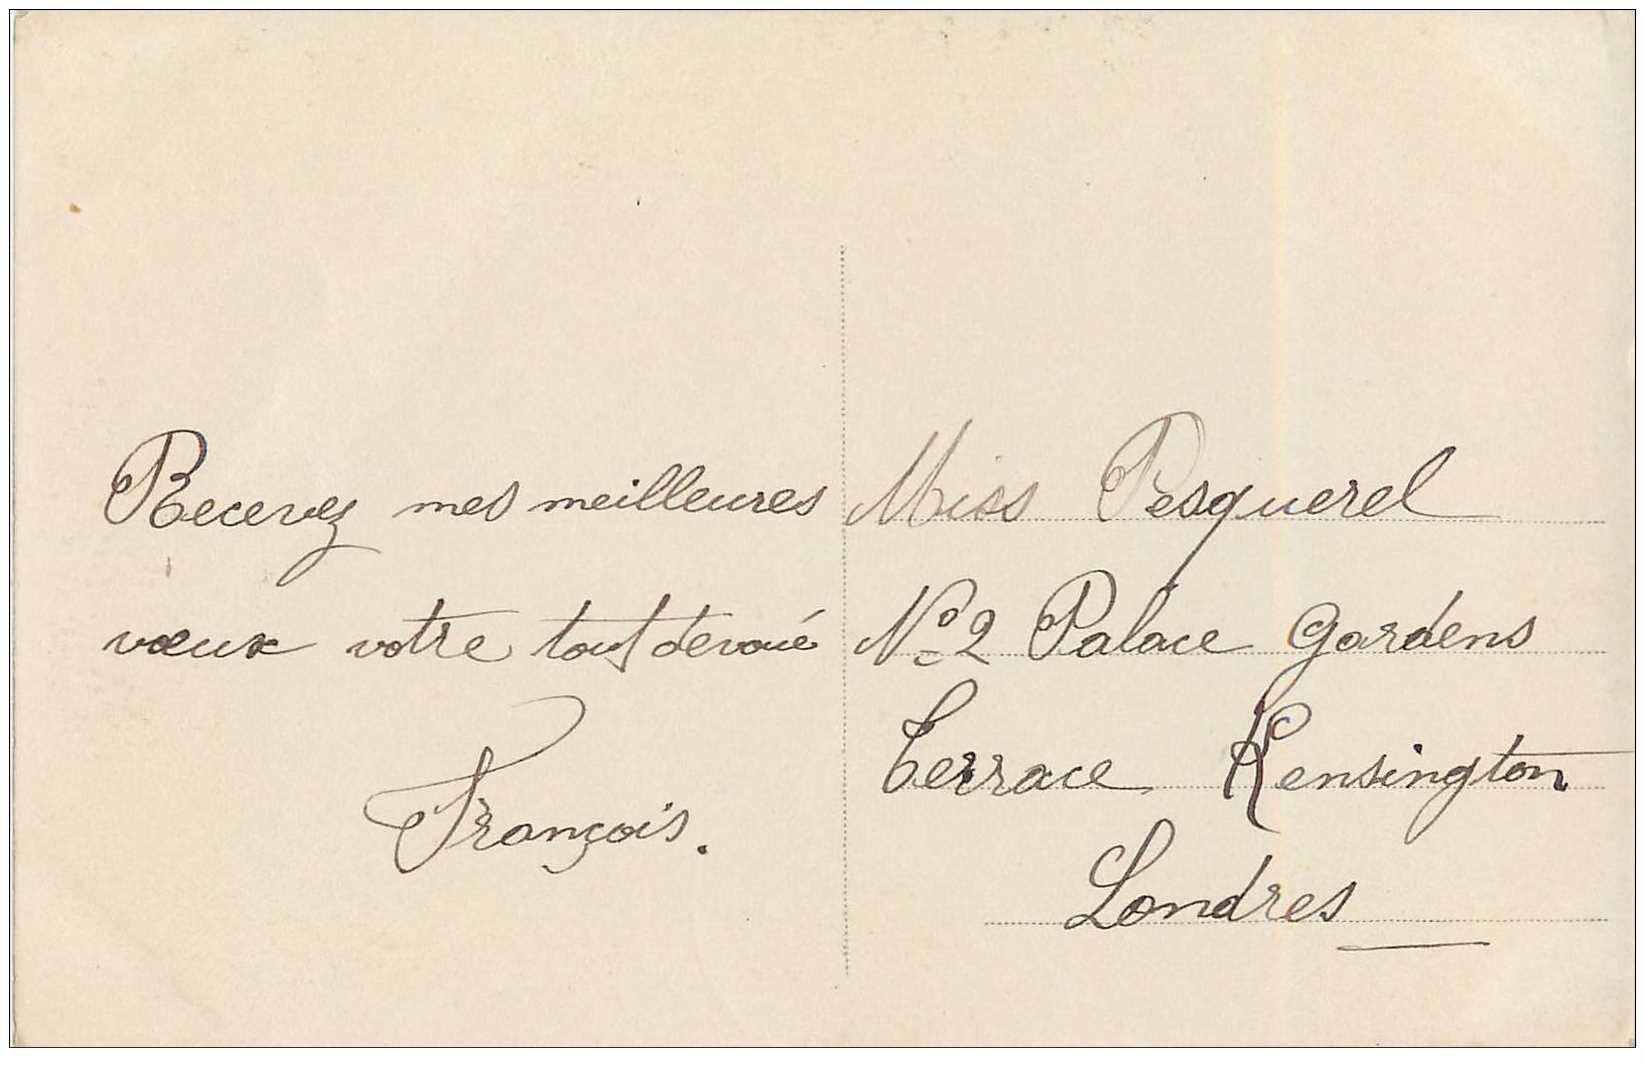 Recevez mes meilleures
vœux votre tout devoué
François.
Miss Pesquerel
Nº 2 Palace Gardens
Terrace Kensington
Londres